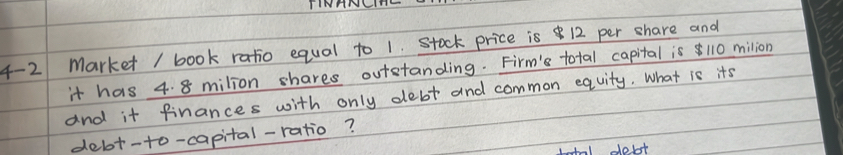 FINANCIAL
4-2 Market / book ratio equal to 1. Stock price is $12 per share and
it has 4.8 milion shares outstanding. Firm's total capital is $110 milion
and it finances with only debt and common equity. What is its
debt-to-capital-ratio ?
total debt